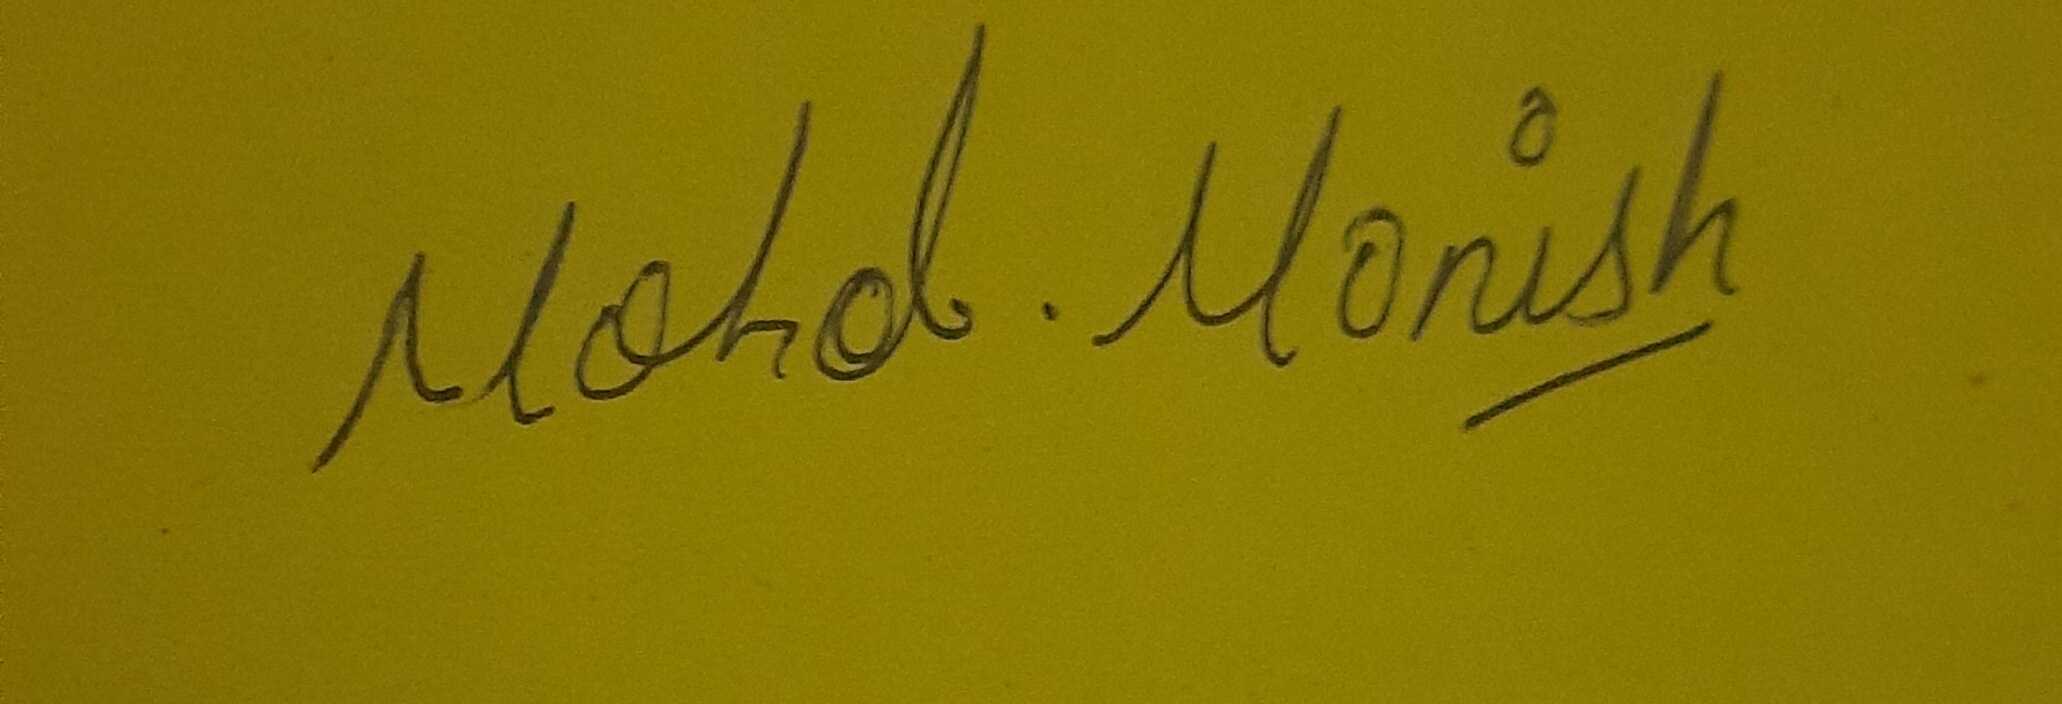 Mohd. Monish